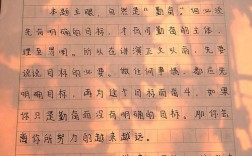 本题主眼，自然是“勤奋”。但必须
先有明确的目标，才有可勤奋的主体，
理至易明。所以在讲演正文以前，先要
谈谈目标的必要。做任何事情，都应先
明确目标，再为这个目标而奋斗。如果
你只是勤奋而没有明确的目标，那你会
离你所努力的越来越远。